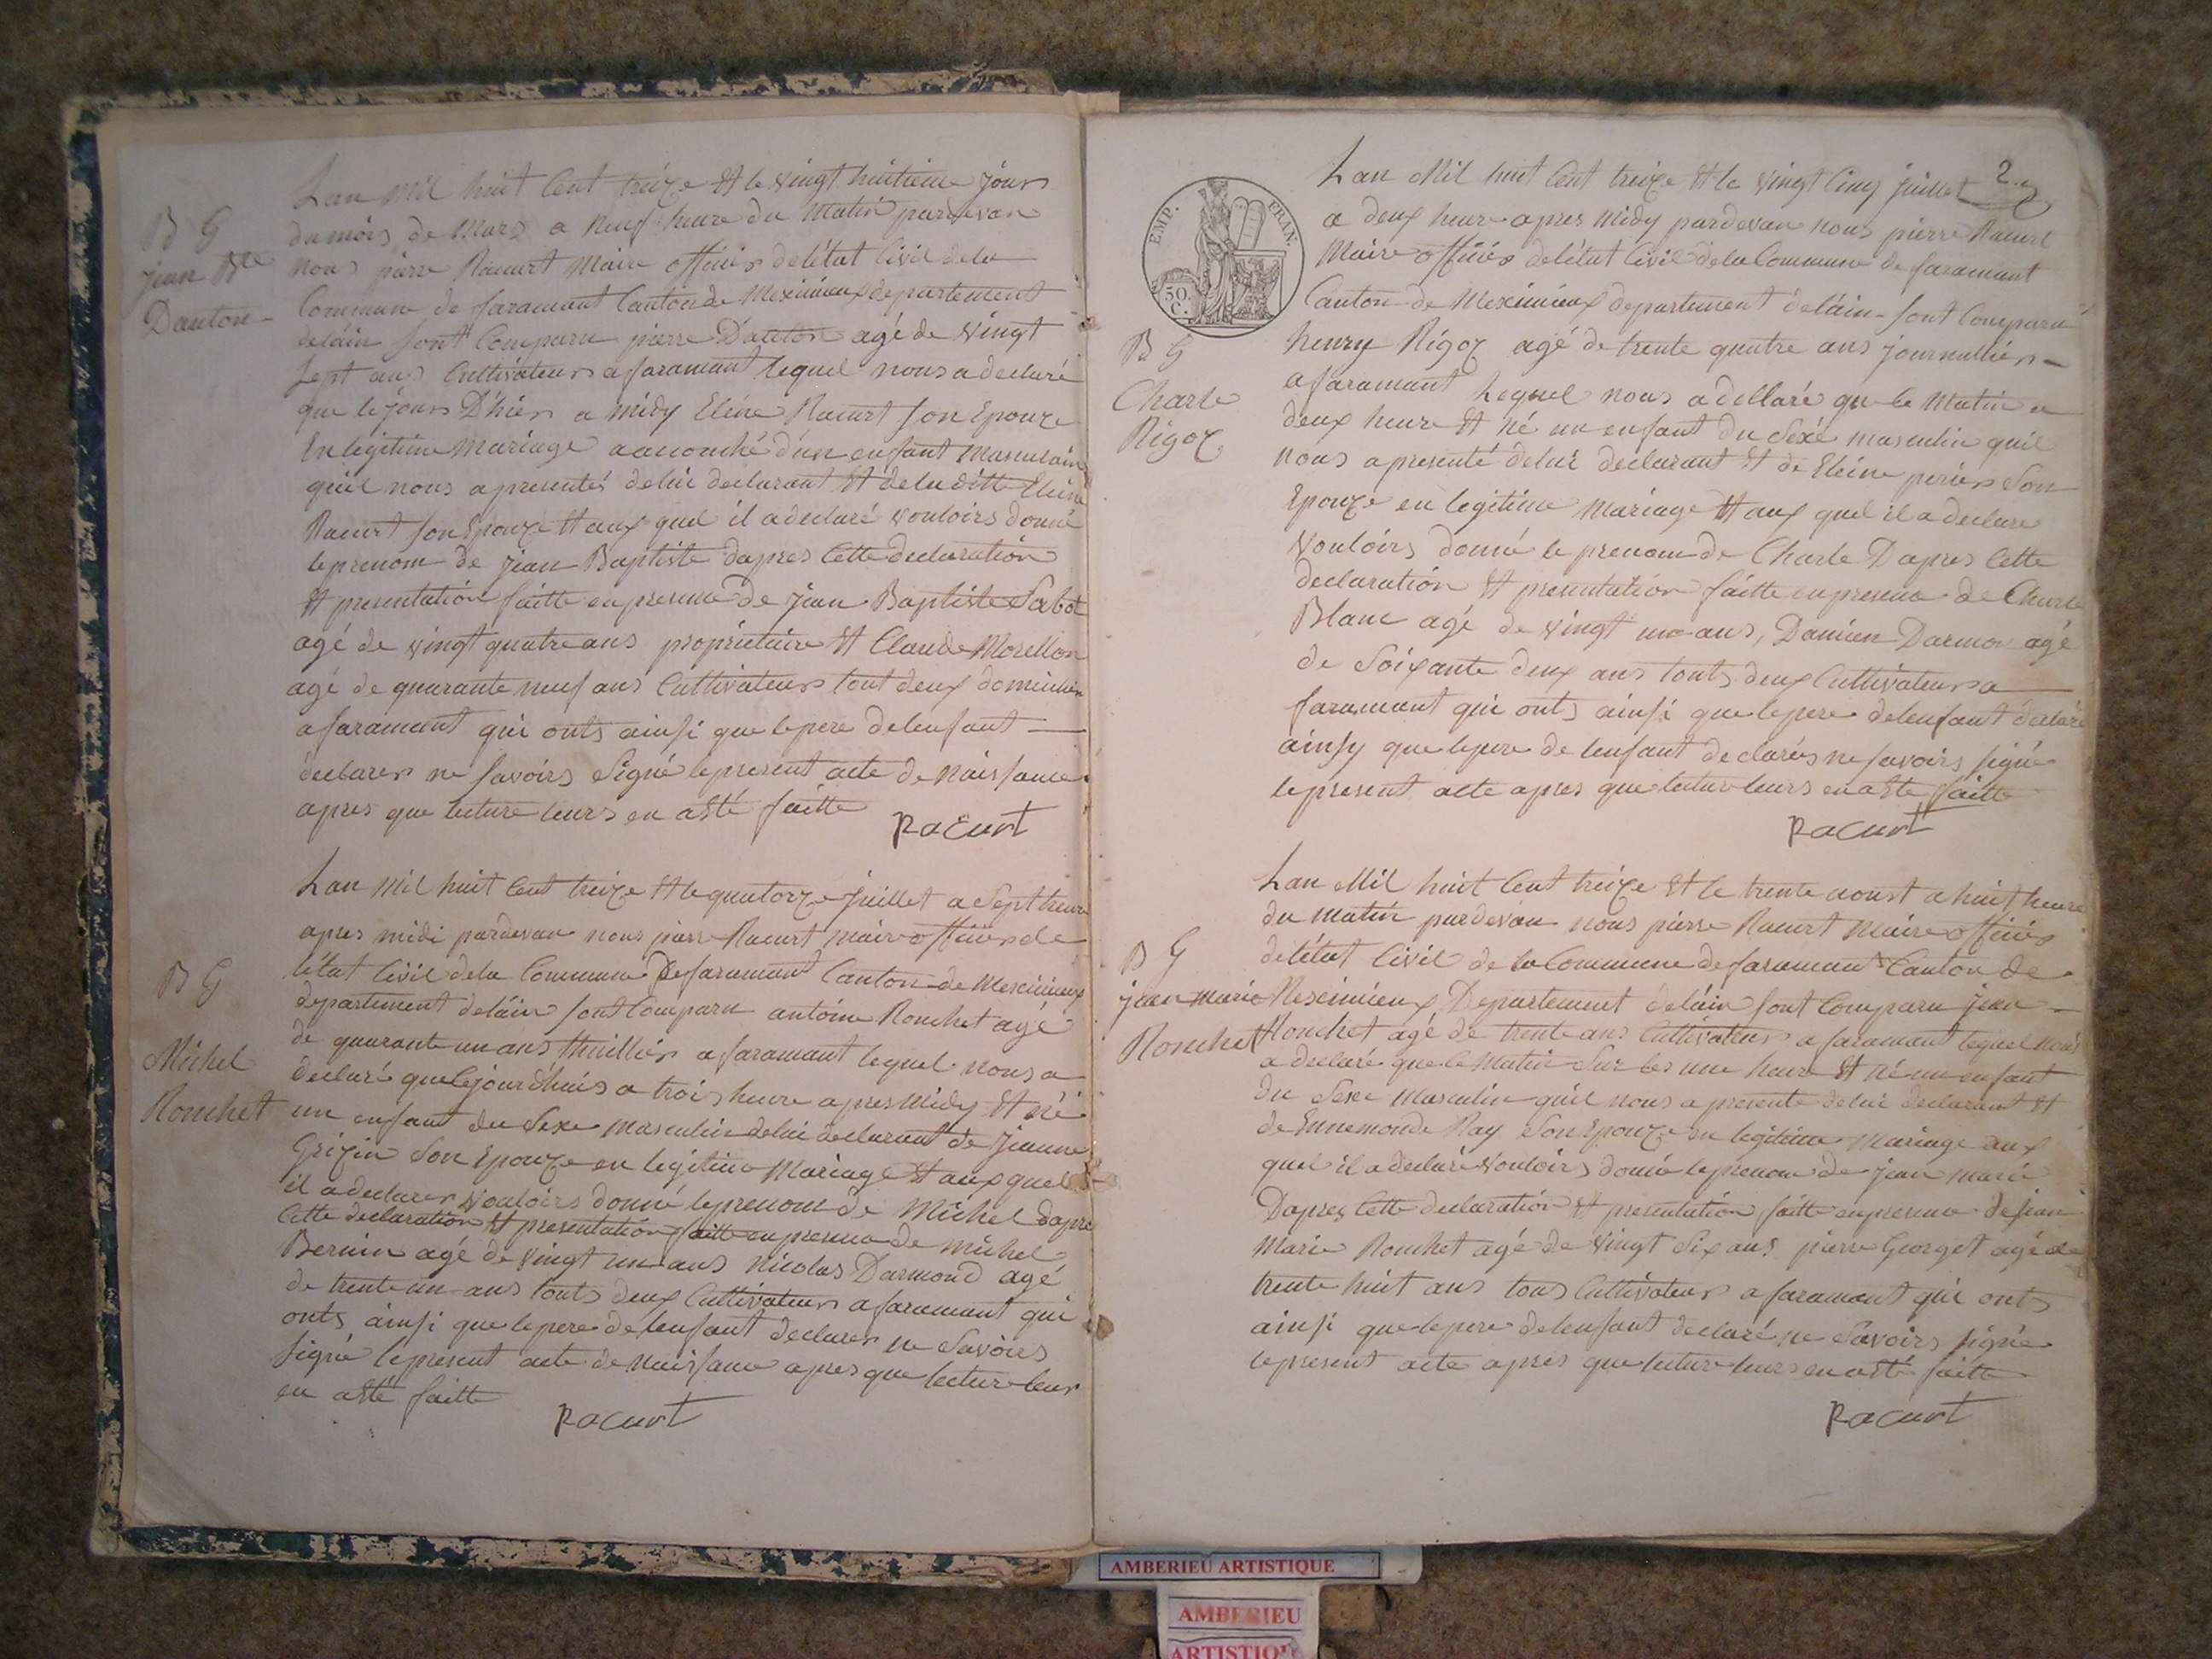 B G
jean Bte
Danton
Lan mil huit Cent treize Et le vingt huitieme jours
du mois de Mars a neuf heure du Matin pardevan
nous pierre Racurt Maire officier de létat Civil dela
Commune de faramant Canton de Meximieux departement
deláin sont Comparu pierre Danton agé de vingt
sept ans Cultivateurs a faramant lequel nous a declaré
que le jours D'hiers a midy Eléine Racurt son Epouze
En legitime Mariage a acouché d'un enfant Masculain
quil nous a presentés de lui declarant Et de la ditte Eleine
Racurt son Epouze Et aux quel il a declaré vouloirs donné
le prenom de jean Baptiste dapres Cette declaration
Et presentation faitte en presence de jean Baptiste Sabot
agé de vingt quatre ans propriétaire Et Claude Morellon
agé de quarante neuf ans Cultivateurs tout deux domicilier
a faramant qui onts ainsi que le pere de lenfant
declarer ne savoirs Signé le present acte de naissance
apres que lecture leurs en a Eté faitte
Racurt
B G
Michel
Ronchet
Lan mil huit Cent treize Et le quatorze juillet a Sept heure
apres midi pardevan nous pierre Racurt maire officier de
létat Civil dela Commune De faramant Canton de Mescimieux
departement deláin sont Comparu antoine Ronchet agé
de quarante un ans thuillier a faramant lequel nous a
declaré que le jourdhuis a trois heure apres Midy Et né
un enfant du Sexe masculin de lui declarant de Jeanne
Grizin Son Epouze en legitime Mariage Et aux quel
il a declarer vouloirs donné le prenom de Michel Dapres
Cette declaration Et presentation faitte en presence de Michel
Bernin agé de vingt un ans Nicolas Darmond agé
de trente un ans touts deux Cultivateurs a faramant qui
onts ainsi que le pere de lenfant declarer ne Savoirs
Signé le present acte de naissance apres que lecture leur
en a Eté faitte
Racurt
2
EMP. FRAN.
50.
C.
B G
Charle
Rigoz
Lan Mil huit Cent treize Et le vingt Cinq juillet
a deux heure apres Midy pardevan nous pierre Racurt
Maire officier de létat Civil dela Commune de faramant
Canton de Meximieux departement deláin sont Comparu
henry Rigoz agé de trente quatre ans journallier
a faramant Lequel nous a dellaré que le Matin a
deux heure Et né un enfant du Sexé masculin quil
nous a presenté de lui declarant Et de Eleine perier Son
Epouze en legitime Mariage Et aux quel il a declare
vouloirs donné le prenom de Charle Dapres Cette
declaration Et presentation faitte en presence de Charle
Blanc agé de vingt un ans, Damien Darmon agé
de Soixante deux ans touts deux Cultivateurs a
faramant qui onts ainsi que le pere de lenfant declaré
ainsy que le pere de lenfant declarés ne savoirs signé
le present acte apres que lecture leurs en a Ete faitte
Racurt
B G
jean marie
Ronchet
Lan Mil huit Cent treize Et le trente aoust a huit heure
du matin pardevan nous pierre Racurt Maire officier
de létat Civil de la Commune de faramant Canton de
Mescimieux Departement deláin sont Comparu jean
Ronchet agé de trente ans Cultivateur a faramant lequel nous
a declaré que le Matin Sur les une heure Et né un enfant
du Sexe Masculin quil nous a presente de lui declarant Et
de Ennemonde Ray Son Epouze en legitime Mariage aux
quel il a declaré vouloirs donné le prenom de jean marie
Dapres Cette declaration Et presentation faitte en presence de jean
Marie Ronchet agé de vingt Six ans pierre Georget agé de
trente huit ans tous Cultivateur a faramant qui onts
ainsi que le pere de lenfant declaré ne Savoirs signée
le present acte apres que lecture leurs en a Eté faitte
Racurt
AMBERIEU ARTISTIQUE
AMBERIEU
ARTISTIQ